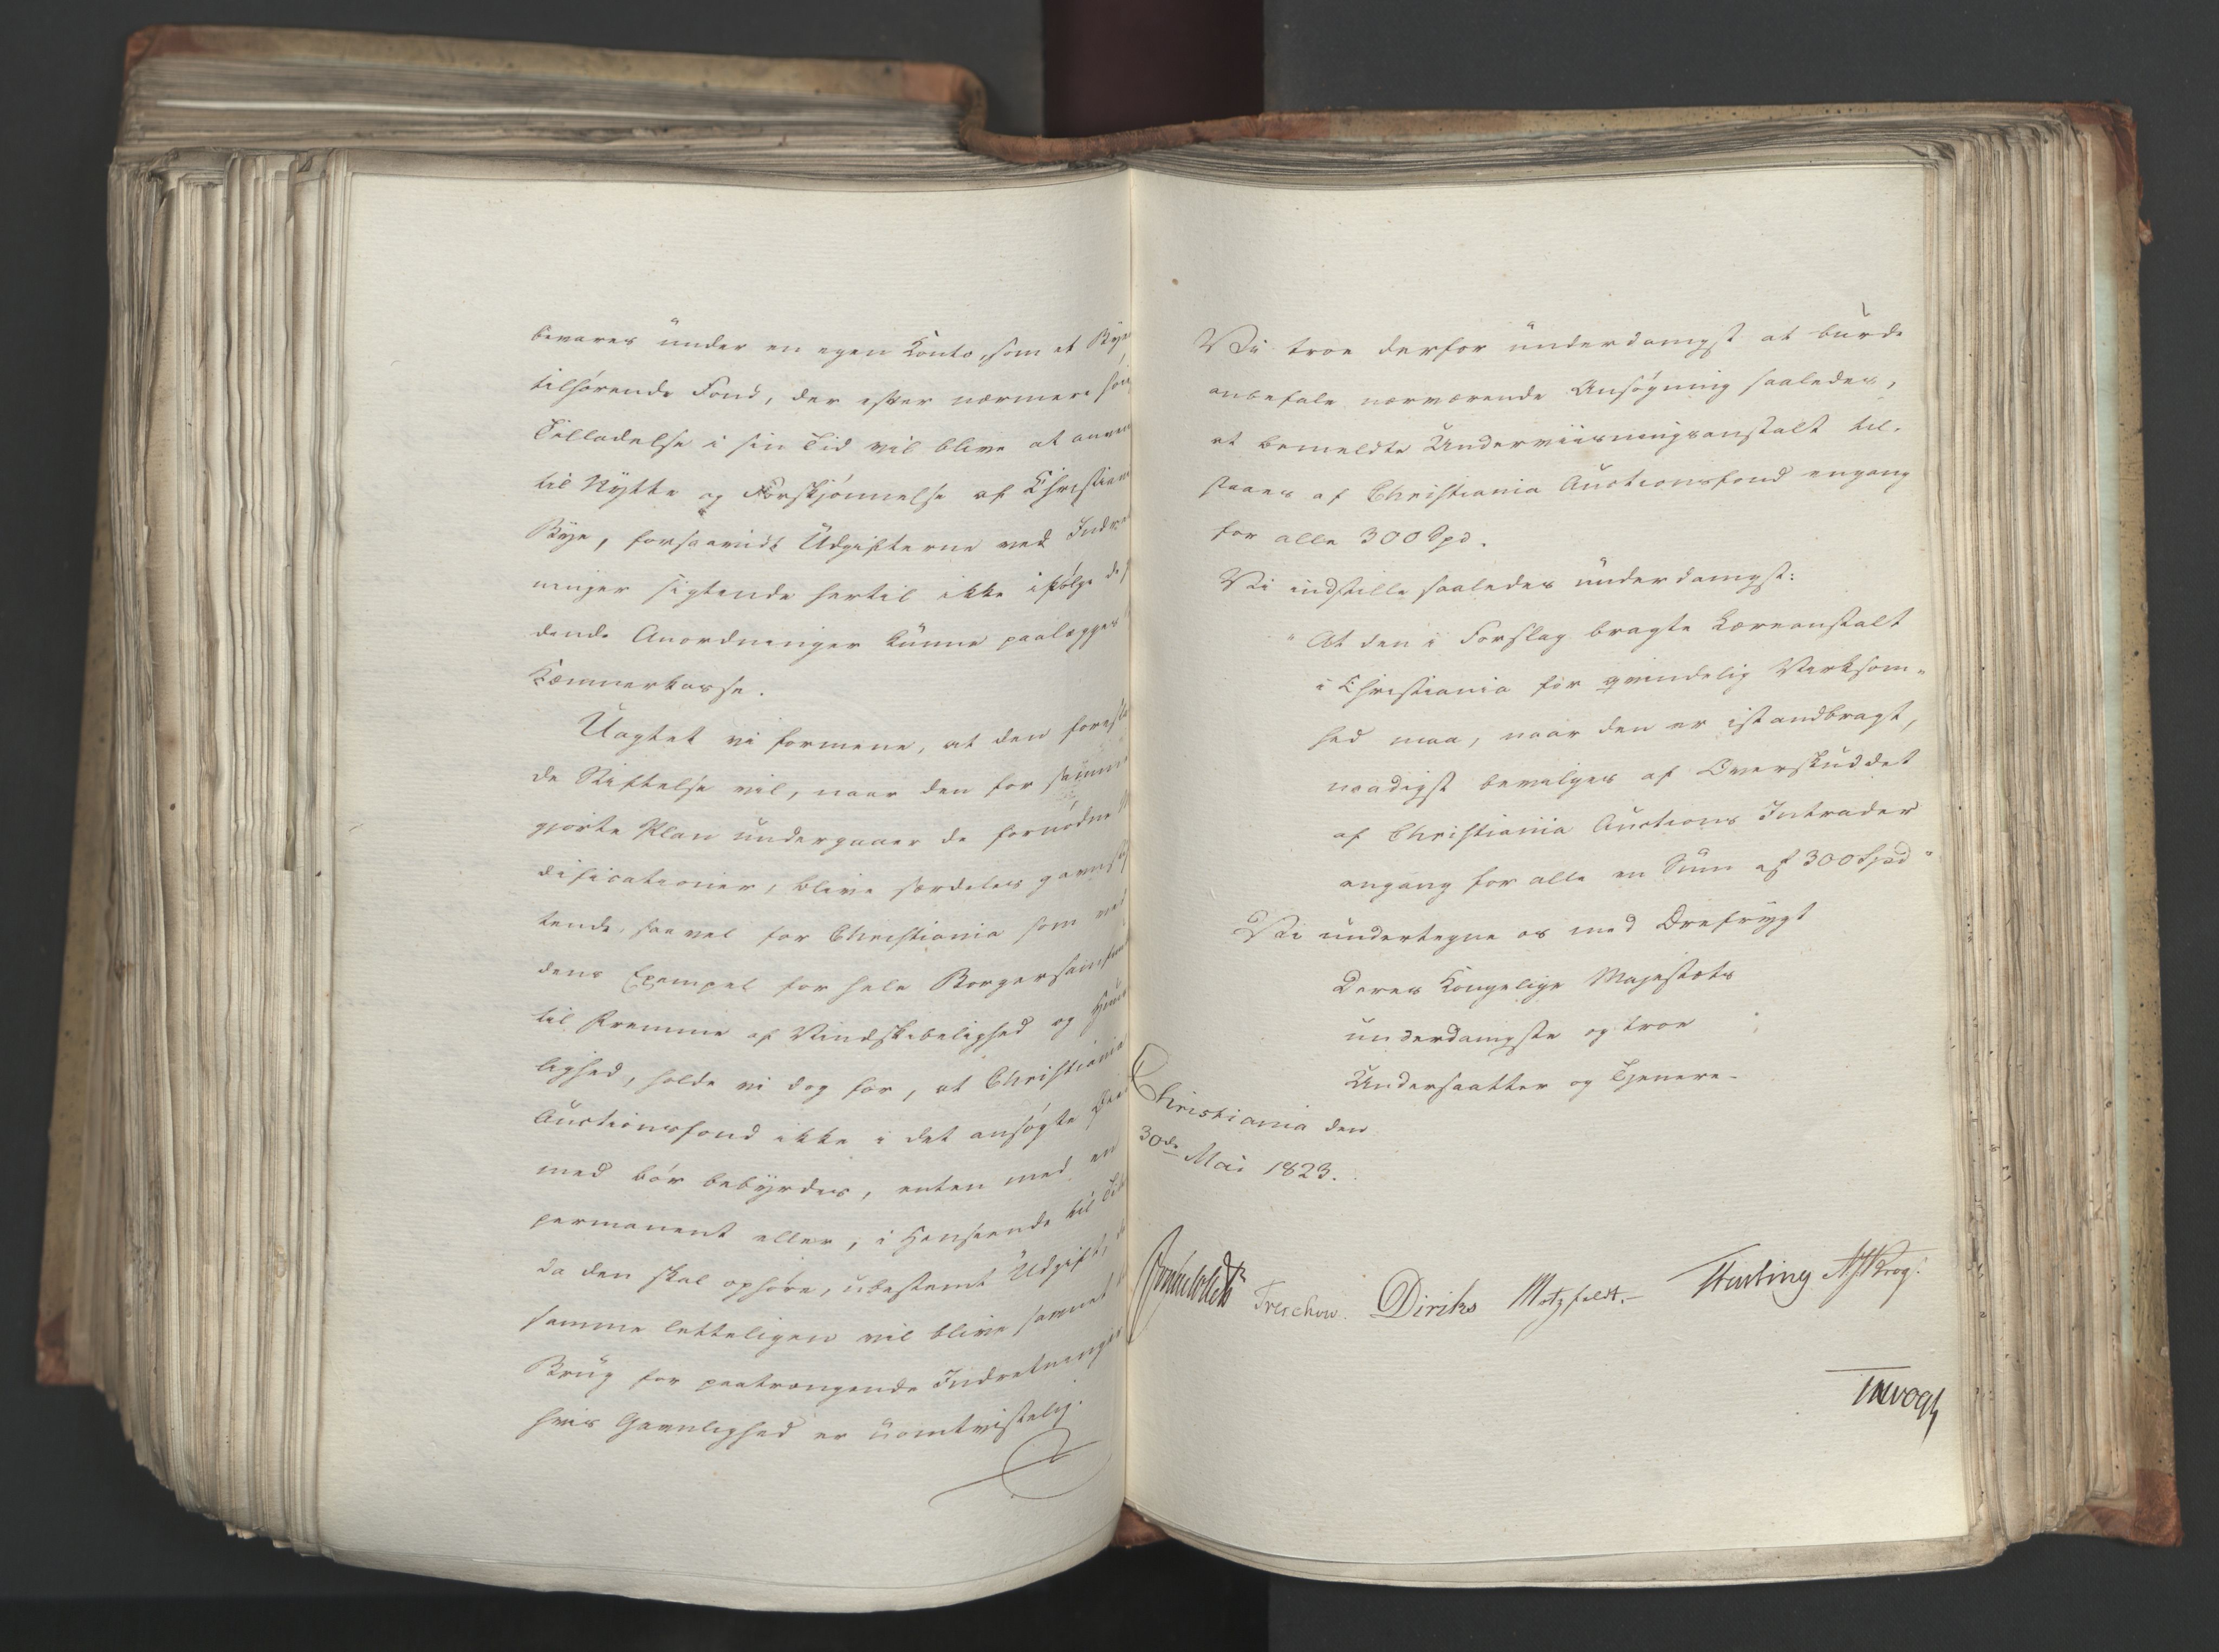 bevares under en egen Konto, som et Bye
tilhørende Fond, der efter nærmere
Tilladelse i sin Tid vil blive at anven
til Nytte og Forskjønnelse af Christian
Bye, forsaavidt Udgifterne ved Indre
ninger sigtende hertil ikke ifølge
dende Anordninger kunne paalægges
Kæmnerkasse.
Uagtet vi formene, at den foresl
de Stiftelse vil, naar den for samme
gjorte Plan undergaaer de fornødne
dificationer, blive særdeles gavns
tende, saavel for Christiania som ved
dens Exempel for hele Borgersamfun
til Fremme af Vindskibelighed og Huus
lighed, holde vi dog for, at Christiania
Auctionsfond ikke i det ansøgte
med bør bebyrdes, enten med en
permanent eller, i Henseende til Tid
da den skal ophøre, ubestemt Udgift,
samme letteligen vil blive savnet
Brug for paatrængende Indretninger
hvis Gavnlighed er uomtvistelig.
Vii troe derfor underdanigst at burde
anbefale nærværende Ansøgning saaledes,
at bemeldte Underviisningsanstalt til-
staaes af Christiania Auctionsfond engang
for alle 300 Spd.
Vi indstille saaledes underdanigst:
"At den i Forslag bragte Læreanstalt
i Christiania for qvindelig Virksom-
hed maa, naar den er istandbragt,
naadigst bevilges af Overskuddet
af Christiania Auctions Intrader
engang for alle en Sum af 300 Spd"
Vi undertegne os med Ærefrygt
Deres Kongelige Majestæts
underdanigste og troe
Undersaatter og Tjenere-
Christiania den
30de Mai 1823.
Treschow. Diriks Motzfeldt.- Fasting Krog.
TMvogt